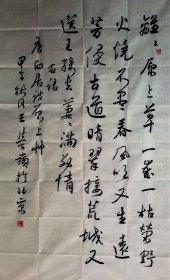 離々原上草一歲一枯榮野
火燒不盡春風吹又生遠
芳侵古道晴翠接荒城又
送王孫去萋々滿別情
右錄
唐白居易詩原上草
甲午秋月王
於北京